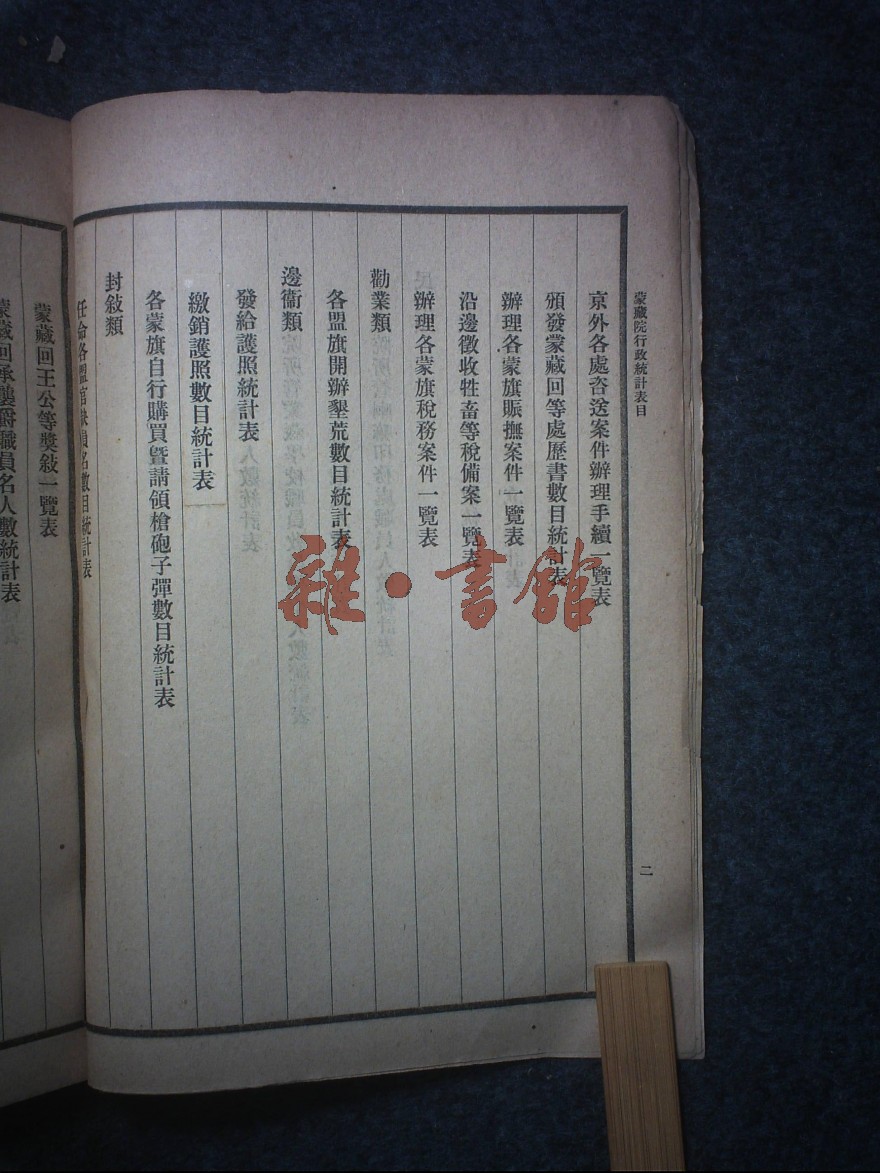 蒙藏院行政統計表目
二
京外各處咨送案件辦理手續一覽表
頒發蒙藏回等處歷書數目統計表
辦理各蒙旗賑撫案件一覽表
沿邊徵收牲畜等稅備案一覽表
辦理各蒙旗稅務案件一覽表
勸業類
各盟旗開辦墾荒數目統計表
邊衞類
發給護照統計表
繳銷護照數目統計表
各蒙旗自行購買曁請領槍砲子彈數目統計表
封敍類
任命各盟官缺員名數目統計表
蒙藏回王公等獎敍一覽表
蒙藏回承襲爵職員名人數統計表
雜·書館